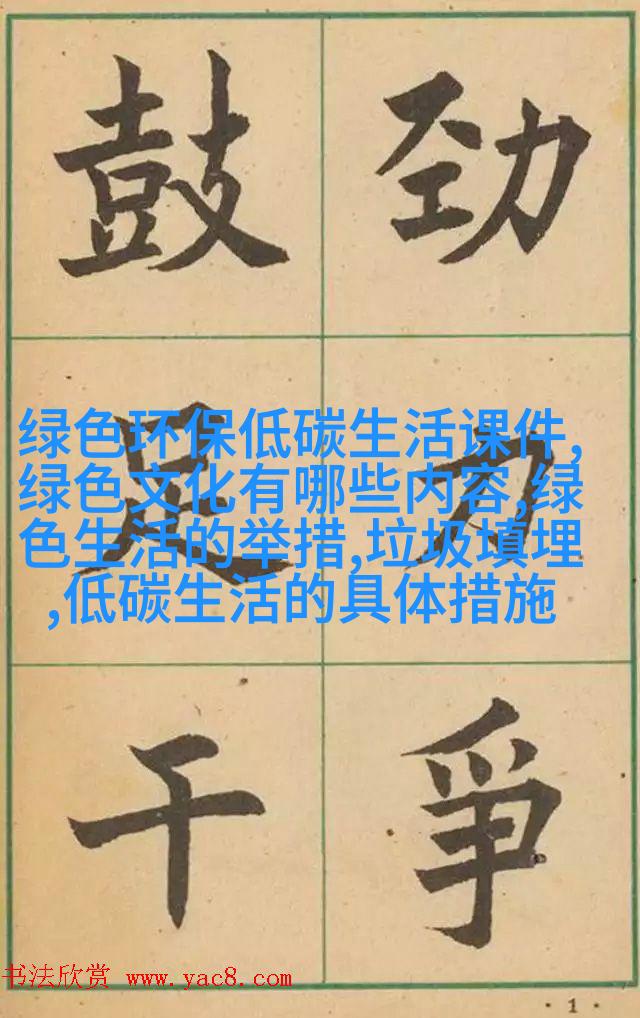 鼓足干
劲力爭
绿色环保低碳生活课件,
绿色文化有哪些内容,绿
色生活的举措,垃圾填埋
,低碳生活的具体措施
书法欣赏 www.yac8.com
· 1 ·